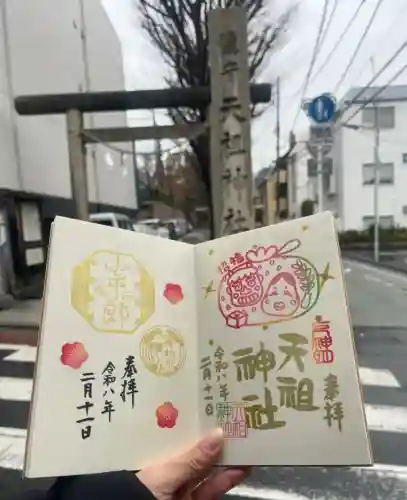 鎮守天祖神社
奉拝
天祖
神社
令和八年
二月十一日
奉拝
令和八年
二月十一日